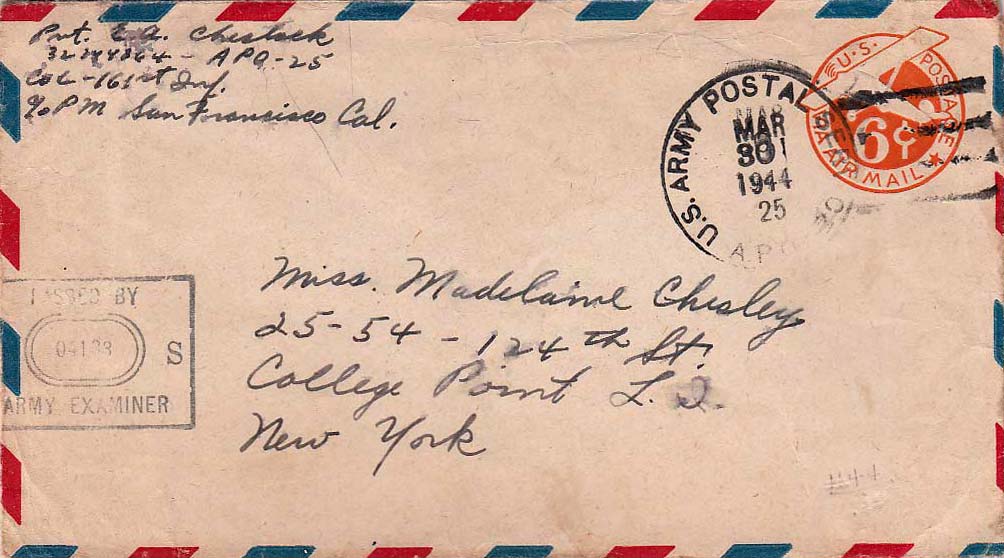 Pvt. E. A. Chestock
32244864 - APO-25
Co L-161st Inf.
℅ PM San Francisco Cal.
U.S. ARMY POSTAL
MAR
1944
25
A.P.
U.S. POSTAGE
6¢
VIA AIR MAIL
PASSED BY
S
ARMY EXAMINER
Miss. Madelaine Chesley
25-54 - 124th St.
College Point L. I.
New York